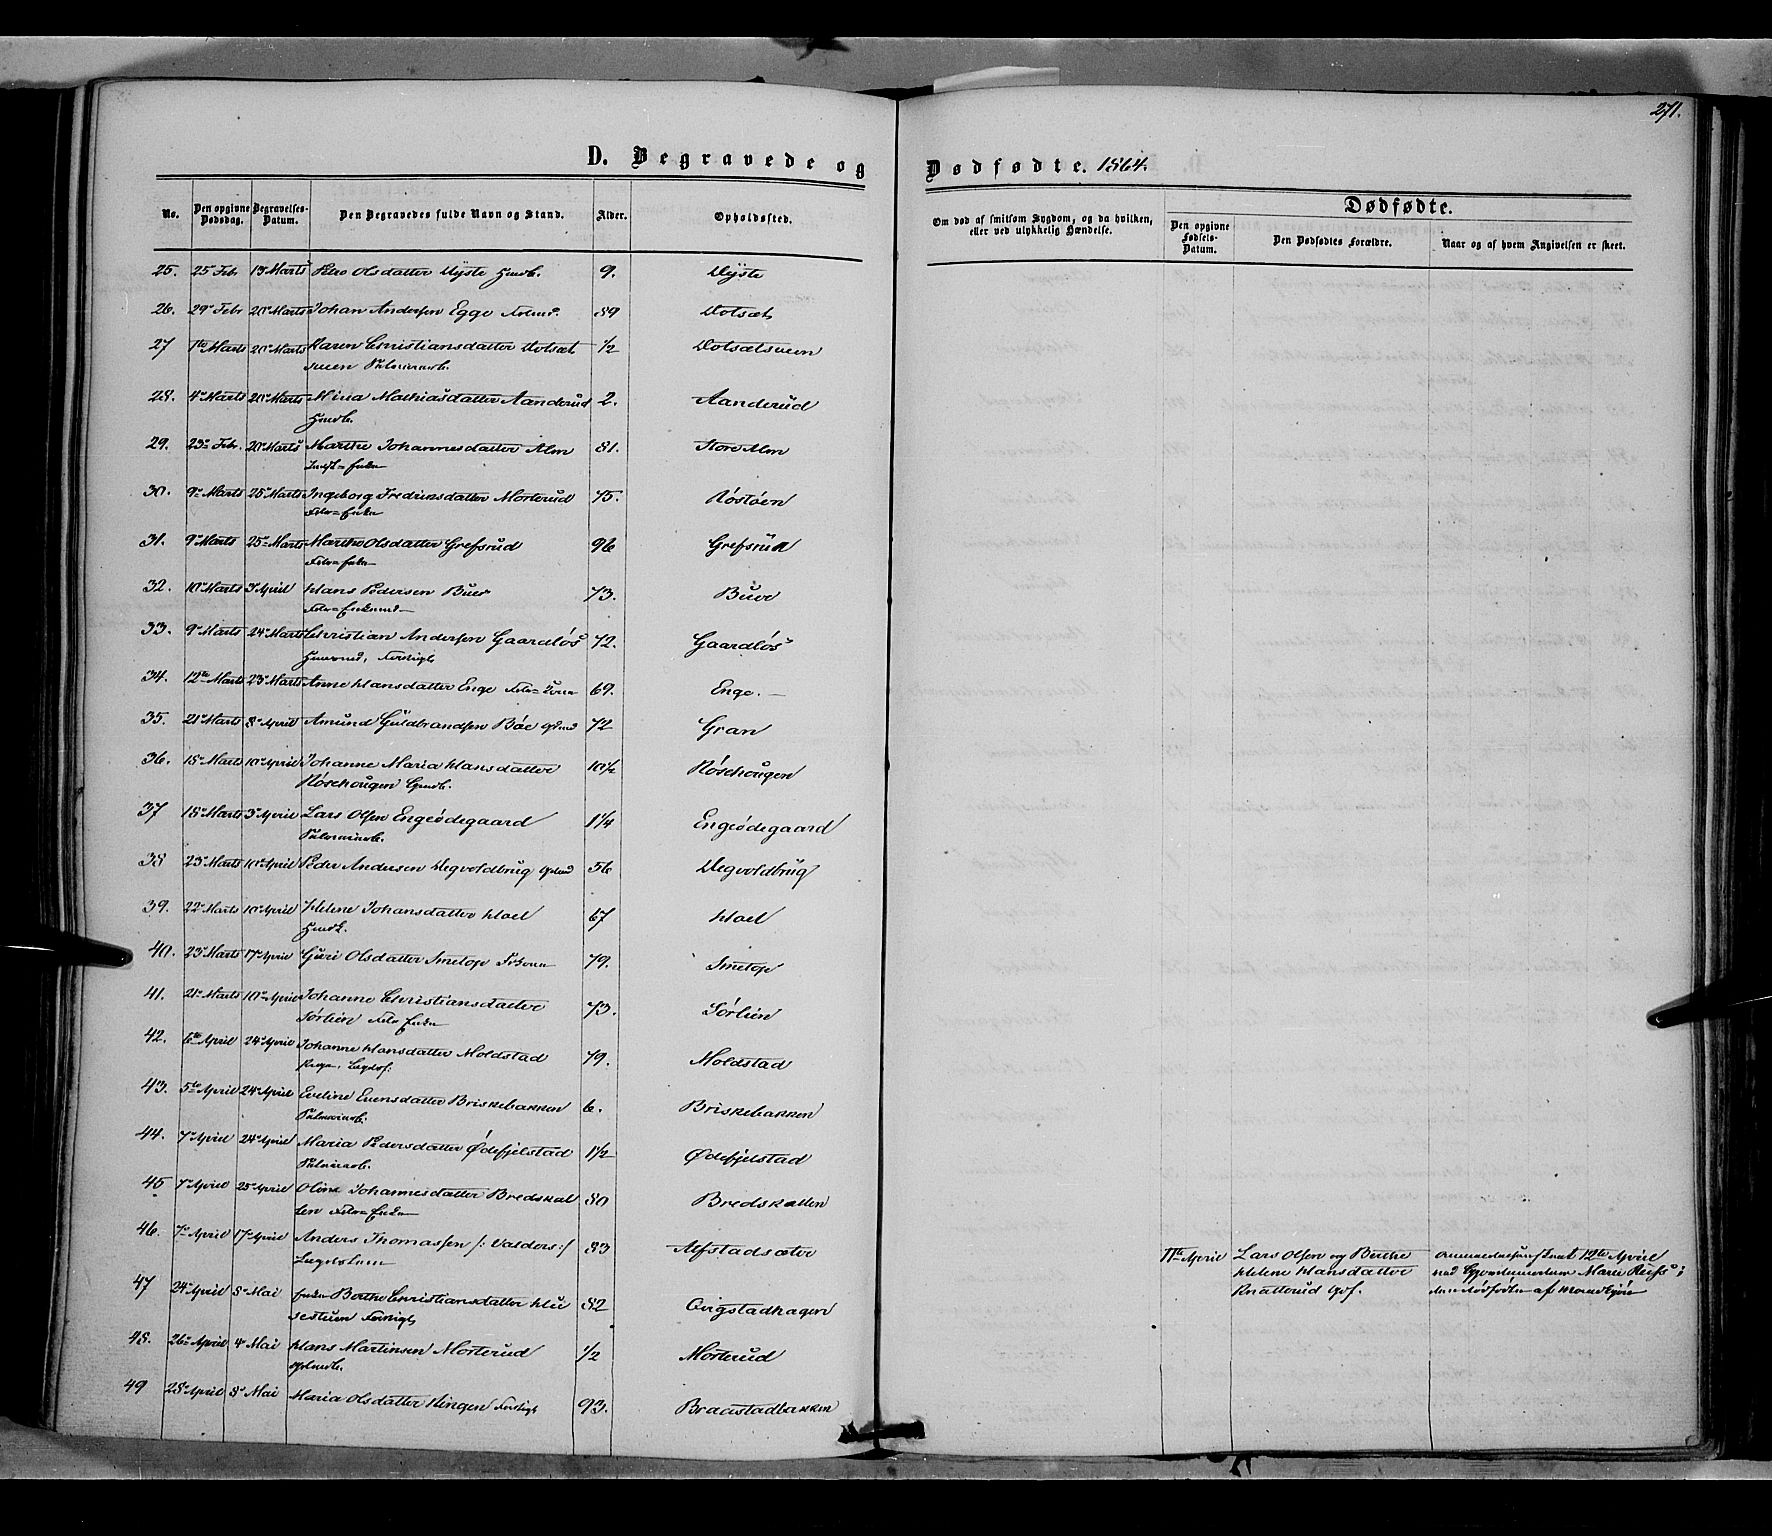 271.
D. Begravede og Dødfødte. 1864.
No.
Den opgivne Dødsdag.
Begravelses-Datum.
Den Begravedes fulde Navn og Stand.
Alder.
Opholdssted.
Om død af smitsom Sygdom, og da hvilken, eller ved ulykkelig Hændelse.
Dødfødte.
Den opgivne Fødsels-Datum.
Den Dødfødtes Forældre.
Naar og af hvem Angivelsen er skeet.
25. 25 Febr 13 Marts Olsdatter 9.
26. 29 Febr 20 Marts Johan Andersen Egge 89 Dotsæt
27 1te Marts 20 Marts Karen Christiansdatter Dotsæt 1/2 Dotsætsveen
28. 4 Marts 20 Marts Mina Mathiasdatter Aanderud 2. Aanderud
29. 23 Febr. 20 Marts Marthe Johannesdatter Alm 81. Store Alm
Enke
30. 9 Marts 25 Marts Ingeborg Fredriksdatter Morterud 75. Røstøen
Enke
31. 9 Marts 25 Marts Marthe Olsdatter Grefsrud 96 Grefsrud
Enke
32. 10 Marts 3 April Hans Pedersen Bue 73. Bue
Enkemd
33. 9 Marts 24 Marts Christian Andersen Gaardløs 72. Gaardløs
34. 12te Marts 23 Marts Anne Hansdatter Enge 69. Enge.
35. 21 Marts 8 April Amund Guldbrandsen Bøe 72 Gran
36. 15 Marts 10 April Johanne Maria Hansdatter 10 1/2 Røsehougen
Røsehougen
37 18 Marts 3 April Lars Olsen Engeødegaard 1 1/4 Engeødegaard
38 23 Marts 10 April Peder Andersen Hegvoldbrug 56 Hegvoldbrug
39. 22 Marts 10 April Helene Johansdatter Hoel 67 Hoel
40. 23 Marts 17 April Guri Olsdatter Smetop 79. Smetop
41. 21 Marts 10 April Johanne Christiansdatter 73. Sørlien
Sørlien Enke
42. 6te April 24 April Johanne Hansdatter Moldstad 79. Moldstad
43. 5te April 24 April Eveline Evensdatter Briskebakken 6. Briskebakken
44. 7 April 24 April Maria Pedersdatter Ødefjelstad 1 1/2 Ødefjelstad
45 7 April 25 April Oline Johannesdatter Bredskal 80 Bredskallen
len Enke
46. 7 April 17 April Anders Thomassen /: Valders :/ 83 Alfstadsæter
Lægdslem
11te April Lars Olsen og Berthe Helene Hansdatter Knatterud
12te April Marie
47 24 April 8 Mai Enke Berthe Christiansdatter 82
48. 26 April 4 Mai Hans Martinsen Morterud 1/2 Morterud
49 28 April 8 Mai Maria Olsdatter 93. Braastadbakken